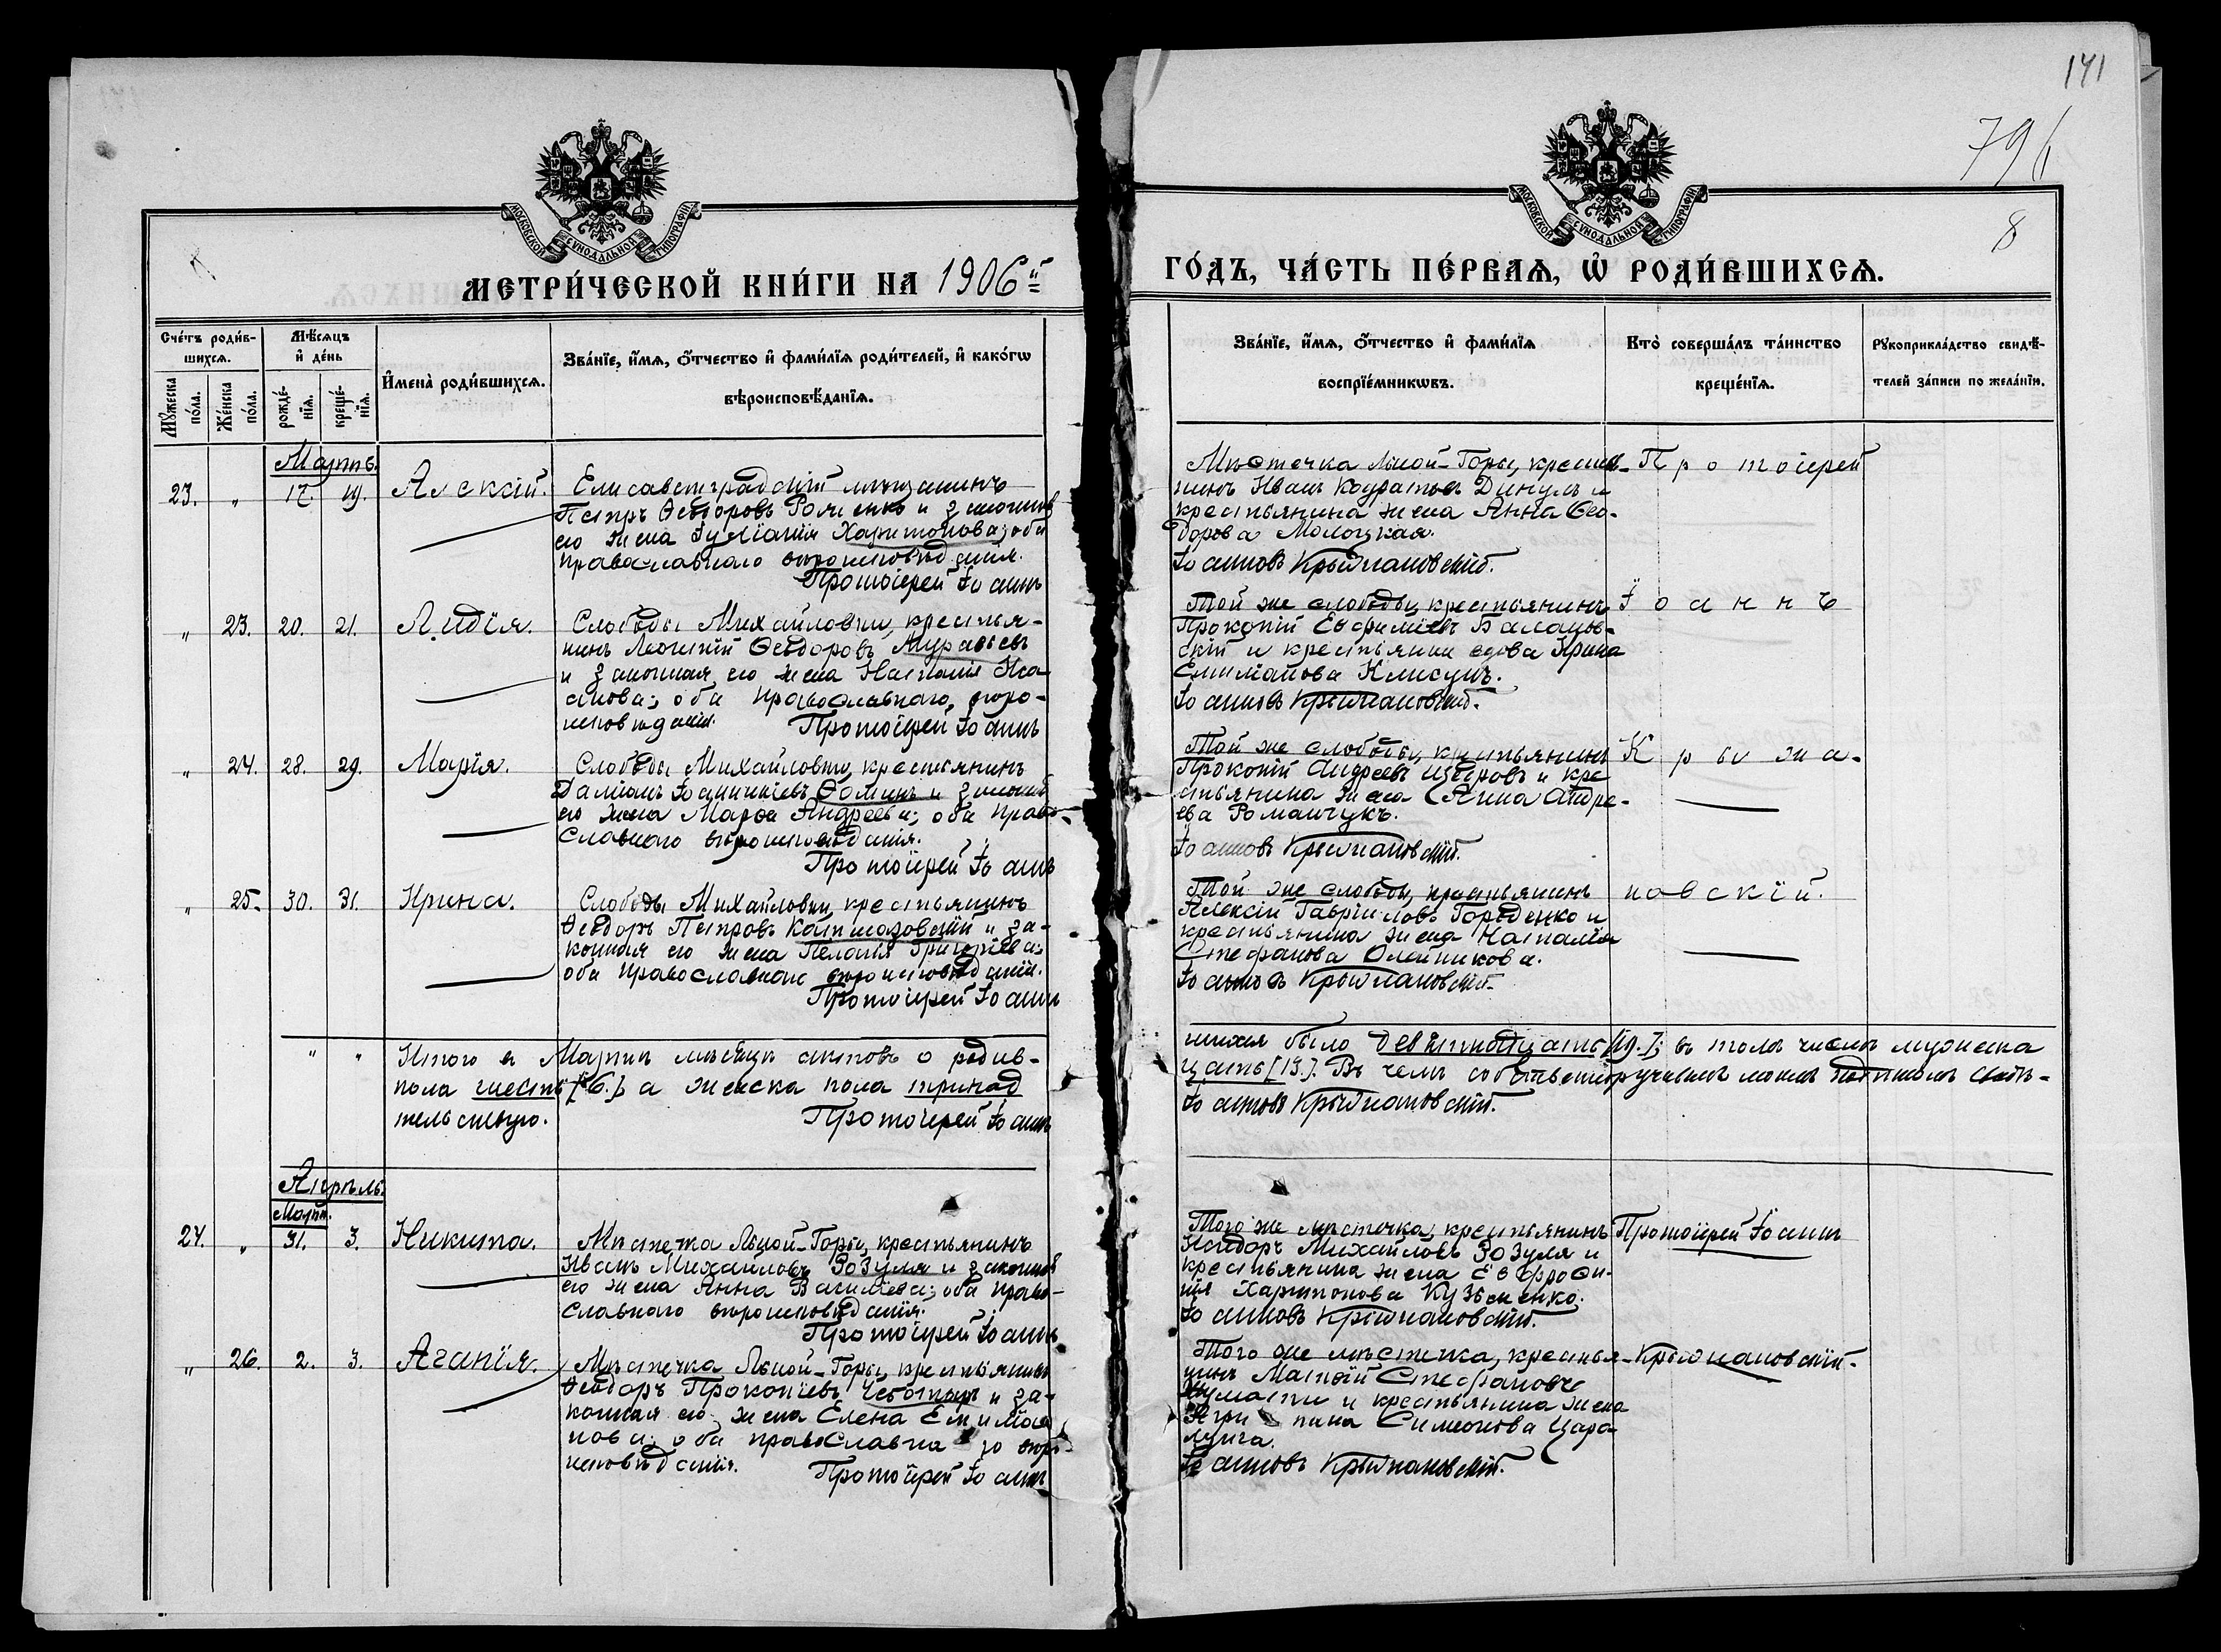 141
796
8
МОСКОВСКОЙ СѴНОДАЛЬНОЙ ТИПОГРАФІИ
МОСКОВСКОЙ СѴНОДАЛЬНОЙ ТИПОГРАФІИ
МЕТРИ́ЧЕСКОЙ КНИ́ГИ НА 1906й
ГО́ДЪ, ЧА́СТЬ ПЕ́РВАѦ, Ѡ҆ РОДИ́ВШИХСѦ.
Сче́тъ роди́в-
шихсѧ.
Мꙋжеска по́ла.
Же́нска по́ла.
Мѣ́сѧцъ
и҆ де́нь
рожде́-
нїѧ.
креще́-
нїѧ.
И҆мена̀ роди́вшихсѧ.
Зва́нїе, и҆́мѧ, ѻ҆́тчество и҆ фами́лїѧ роди́телей, и҆ како́гѡ
вѣроисповѣ́данїѧ.
Зва́нїе, и҆́мѧ, ѻ҆́тчество и҆ фами́лїѧ
воспрїе́мникѡвъ.
Кто̀ соверша́лъ та́инство
креще́нїѧ.
Рꙋкоприкла́дство свидѣ́-
телей за́писи по жела́нїю.
Мартъ.
23. " 17. 19. Алексій.
Елисаветградскій мѣщанинъ
Петръ Ѳеодоровъ и законная
его жена Іуліанія Харитонова; оба
православнаго вѣроисповѣданія.
Протоіерей Іоаннъ
Мѣстечка Лысой-Горы, крестья-
нинъ Иванъ и
крестьянина жена Анна Ѳео-
дорова Молоцкая.
Іоанновъ Крыжановскій.
Протоіерей
" 23. 20. 21. Лидія.
Слободы Михайловки, крестья-
нинъ Леонтій Ѳеодоровъ Муравьевъ
и законная его жена Наталія Иса-
акова; оба православнаго вѣро-
исповѣданія. Протоіерей Іоаннъ
Той же слободы, крестьянинъ
Прокопій Евфиміевъ
и крестьянина вдова Ирина
Іоанновъ Крыжановскій.
Іоаннъ
" 24. 28. 29. Марія.
Слободы Михайловки, крестьянинъ
Даміанъ Іоанникіевъ Ѳоминъ и законная
его жена Марѳа Андреева; оба право-
славнаго вѣроисповѣданія.
Протоіерей Іоаннъ
Той же слободы, крестьянинъ
Прокопій Андреевъ и кре-
стьянина жена Анна Андре-
ева Романчукъ.
Іоанновъ Крыжановскій.
Крыжа-
" 25. 30. 31. Ирина.
Слободы Михайловки, крестьянинъ
Ѳеодоръ Петровъ и за-
конная его жена Пелагія Григорьева;
оба православнаго вѣроисповѣданія.
Протоіерей Іоаннъ
Той же слободы, крестьянинъ
Алексій Гавріиловъ Горденко и
крестьянина жена Наталія
Стефанова Олейникова.
Іоанновъ Крыжановскій.
новскій.
" " Итого въ Мартѣ мѣсяцѣ актовъ о родив-
шихся было девятнадцать [19.]; въ томъ числѣ мужеска
пола шесть [6.], а женска пола тринад
цать [13.]. Въ чемъ собственноручнымъ моимъ подписомъ свидѣ-
тельствую. Протоіерей Іоаннъ
Іоанновъ Крыжановскій.
Апрѣль.
Март.
24. " 31. 3. Никита.
Мѣстечка Лысой-Горы, крестьянинъ
Иванъ Михайловъ Зозуля и законная
его жена Анна Василіева; оба право-
славнаго вѣроисповѣданія.
Протоіерей Іоаннъ
Того же мѣстечка, крестьянинъ
Исидоръ Михайловъ Зозуля и
крестьянина жена Евфроси-
нія Харитонова Кузьменко.
Іоанновъ Крыжановскій.
Протоіерей Іоаннъ
" 26. 2. 3. Агапія.
Мѣстечка Лысой-Горы, крестьянинъ
Ѳеодоръ Прокопіевъ Чеботарь и за-
конная его жена Елена Емиліа-
нова; оба православнаго вѣро-
исповѣданія. Протоіерей Іоаннъ
Того же мѣстечка, крестья-
нинъ Матѳій Стефановъ
и крестьянина жена
Агрипина Симеонова Цара-
лунга.
Іоанновъ Крыжановскій.
Крыжановскій.